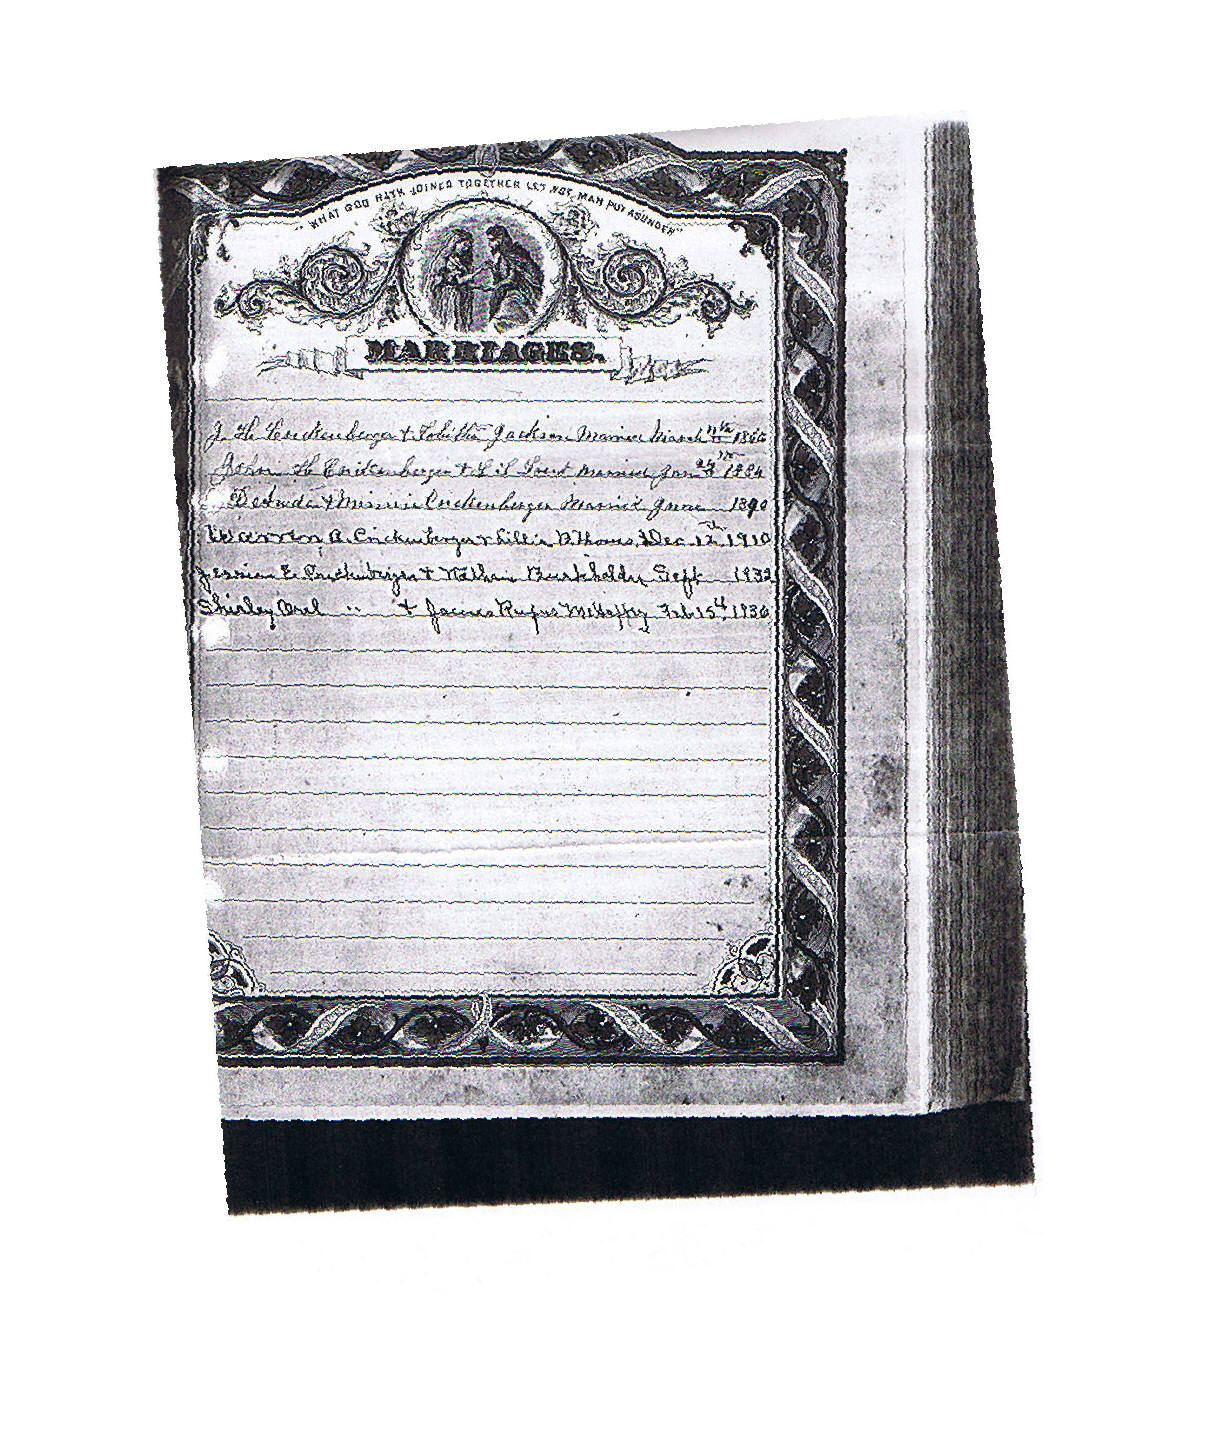 "WHAT GOD HATH JOINED TOGETHER LET NOT MAN PUT ASUNDER"
MARRIAGES.
J. H. Crickenberger & Tobitha Jackson Married March 1866
John H Crickenberger & married Jan 1884
& Minnie Crickenberger Married June 1890
Warren A. Crickenberger & Lillie B. Thomas, Dec 12th 1910
Jessie E. Crickenberger & Nathan Burkholder Sept 1932
Shirley " & James Rufus Feb 15, 1930